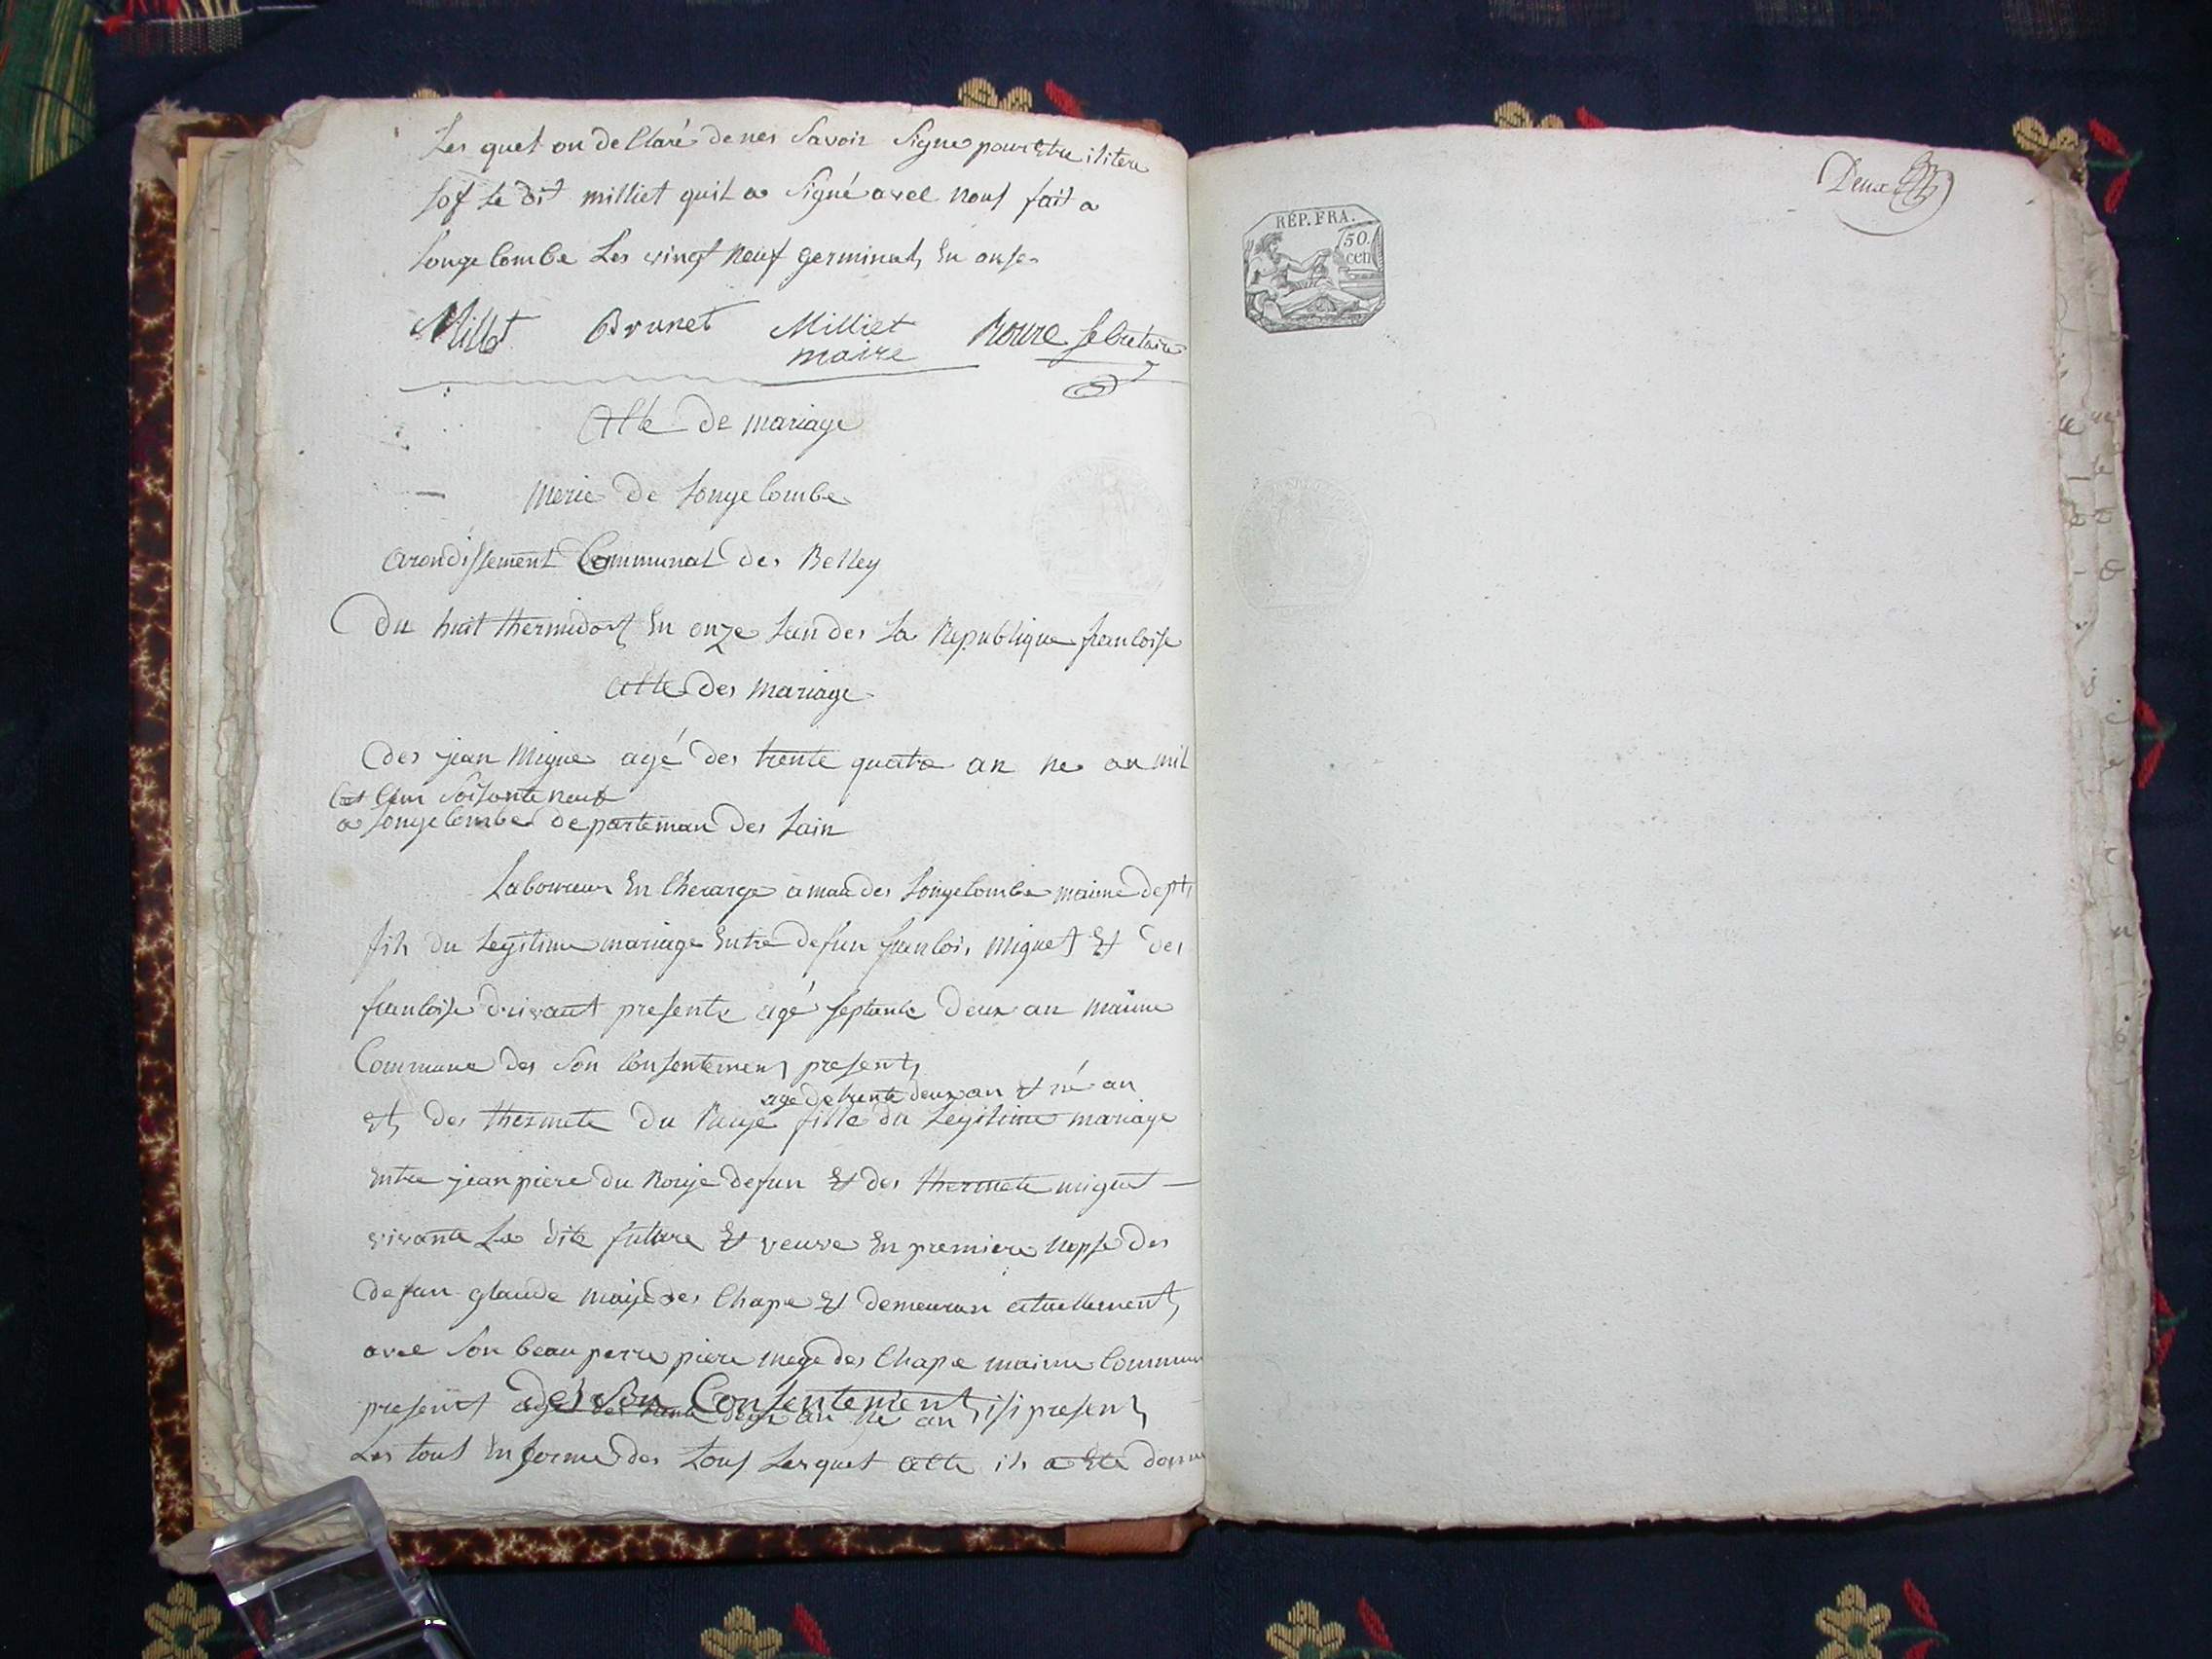 Les quel on declaré de nes Savoir Signe pour Etre ilitere
sof Le dit milliet quil a Signé avec nous fait a
Longecombe Les vingt neuf germinal, En onse
Millet Brunet Milliet Roux Secretaire
maire
Acte de mariage
Merie de Longecombe
arondissement Communal des Belley
Du huit thermidort En onze Lan des La Republique francoise
acte des mariage
des jean Migne agé des trente quatre an ne an mil
set Cen soisante neuf
a Longecombe departeman des Lain
Laboureur En Cherarge a mau des Longecombe maime dept
fils du Legitime mariage Entre defun francois Miguet Et des
francoise vivant presente agé septante deux an maime
Commune des Son Consentement present
age de trente deux an et né an
Et des thermete du Rouje fille du Legitime mariage
Entre jean piere du Rouje defun Et des thermete miguet
vivante La dite future Et veuve En premiere nopse des
defun glaude des Chape Et demeuran actuellement
avec Son beau perre piere mege des Chape maime Commune
present des Son Consentement isi present
Les tout En forme des Tous Lesquel acte ils a Ete donne
Deux
RÉP. FRA.
50.
cen